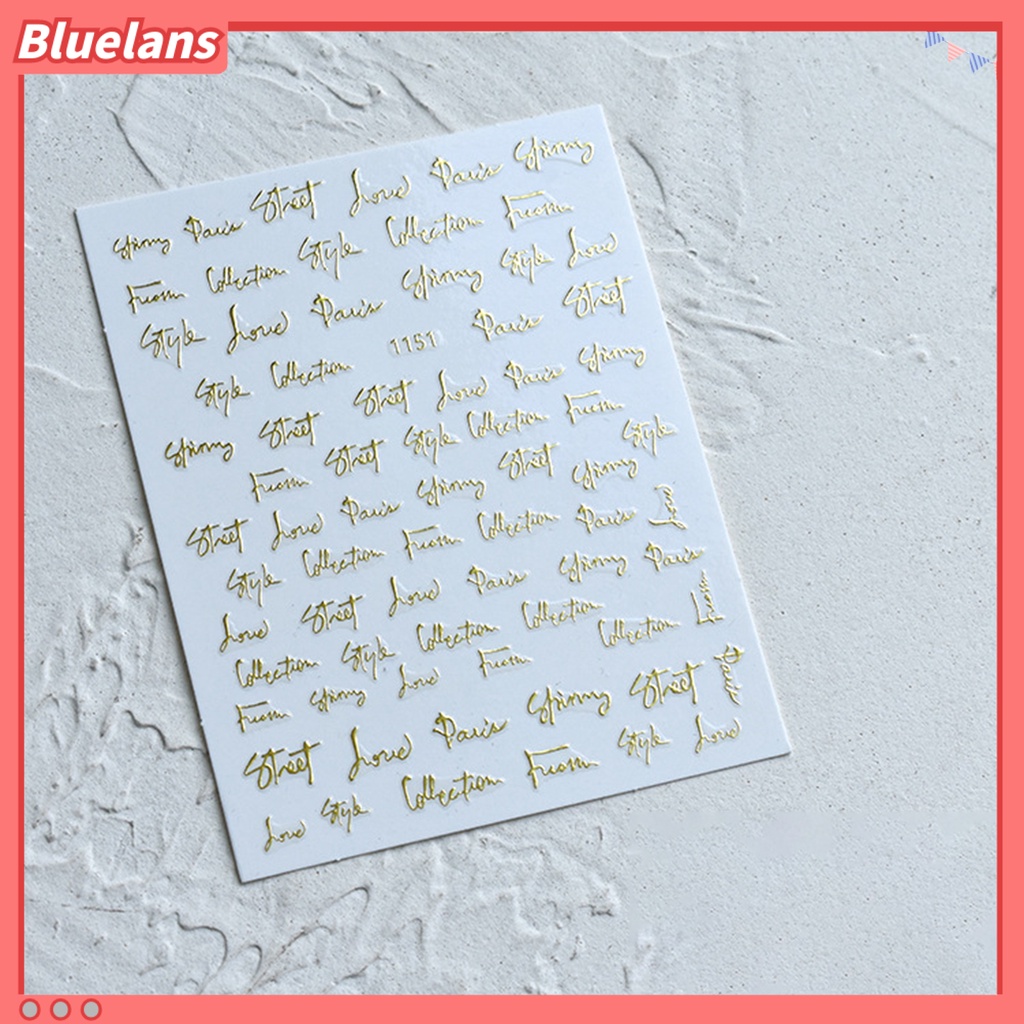 Bluelans
Spinny Paris Street Love Paris Spinny
From Collection Style Collection From
Style Love Paris Spinny Style Love
Style Collection 1151 Paris Street
Spinny Street Street Love Paris Spinny
From Street Style Collection From
Street Love Paris Spinny Street Spinny Style
Style Collection From Collection Paris Love
Love Street Love Paris Spinny Paris
Collection Style Collection Collection Collection From
From Spinny Love From
Street Love Paris Spinny Street Paris
Love Style Collection From Style Love